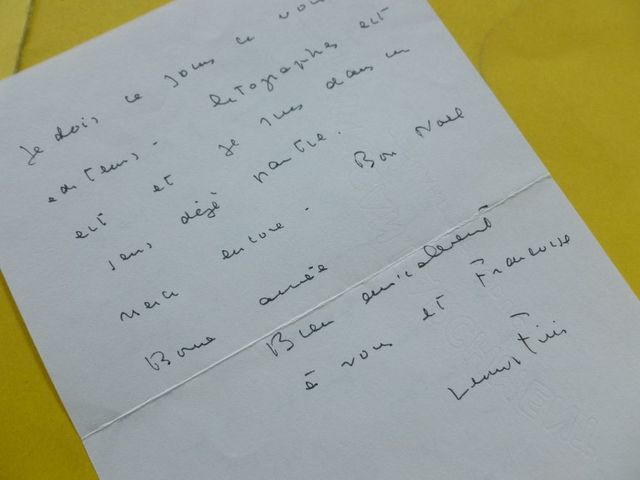 Je dois ce jours ce vous
editeurs - lithographes est
est et je suis dans un
sens déjà partie.
merci encore. Bon Noel
Bonne année
Bien amicalement
à vous et Françoise
Leonor Fini